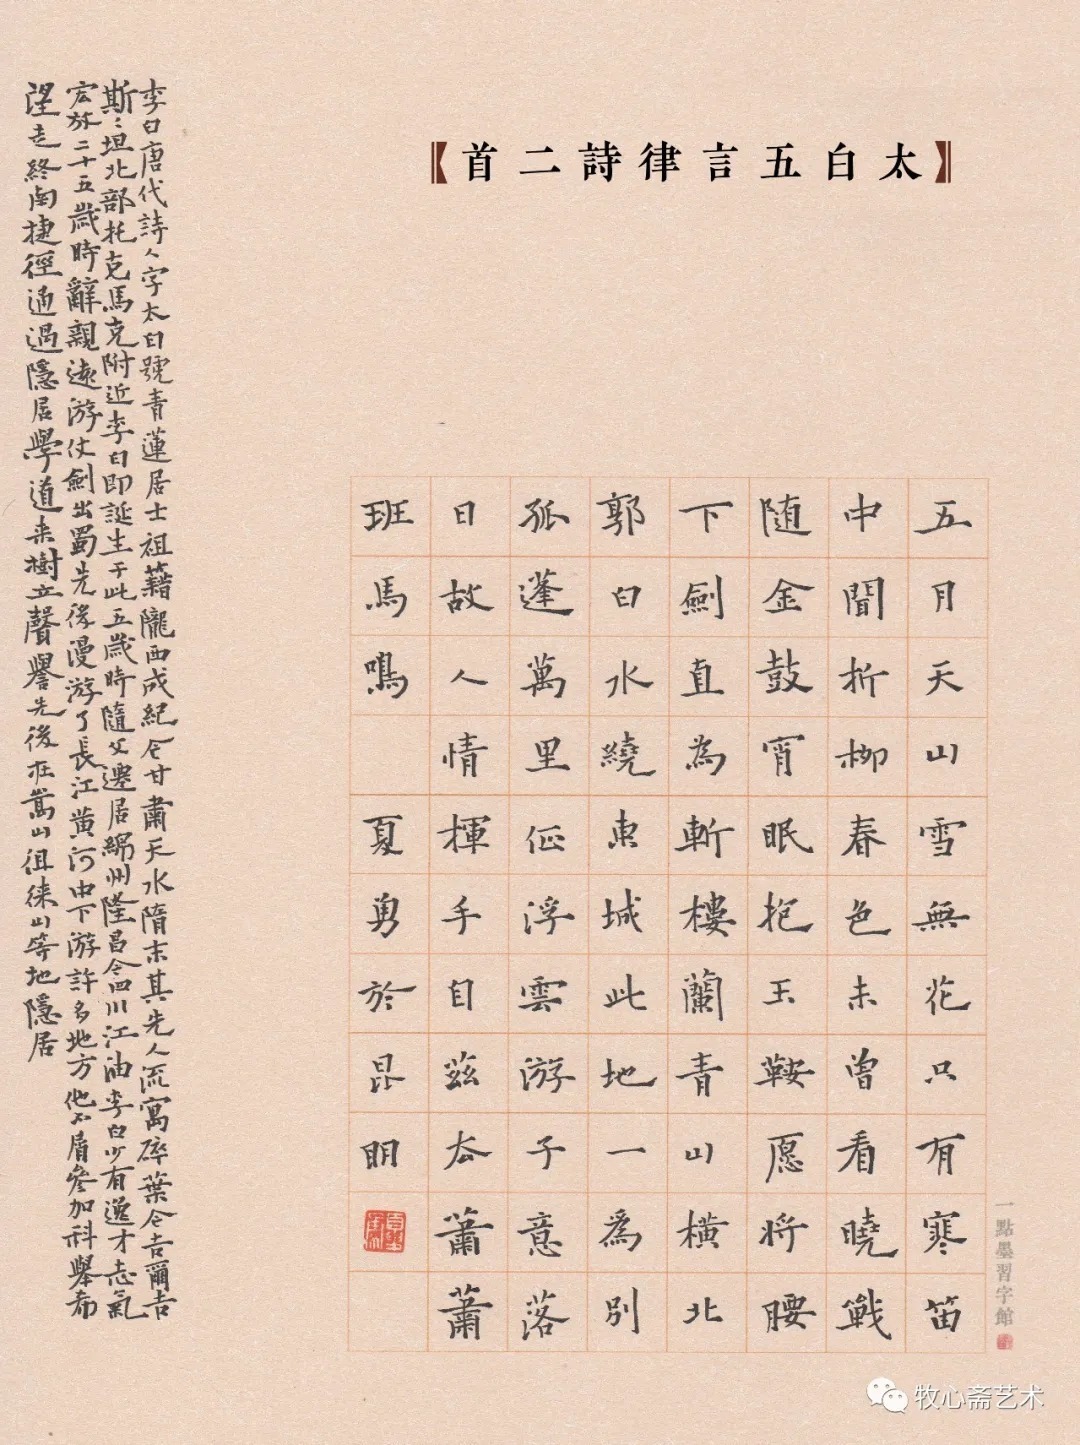 【太白五言律詩二首】
五月天山雪無花只有寒笛
中聞折柳春色未曾看曉戰
随金鼓宵眠抱玉鞍愿将腰
下劍直為斬樓蘭青山横北
郭白水繞東城此地一為別
孤蓬萬里征浮雲游子意落
日故人情揮手自茲去蕭蕭
班馬鳴 夏勇於昆明
李白唐代詩人字太白號青蓮居士祖籍隴西成紀今甘肅天水隋末其先人流寓碎葉今吉爾吉
斯〻坦北部托克馬克附近李白即誕生于此五歲時隨父遷居綿州隆昌今四川江油李白少有逸才志氣
宏放二十五歲時辭親遠游仗劍出蜀先後漫游了長江黄河中下游許多地方他不屑參加科舉希
望走終南捷徑通過隱居學道来樹立聲譽先後在嵩山徂徠山等地隱居
一點墨習字館
牧心斋艺术